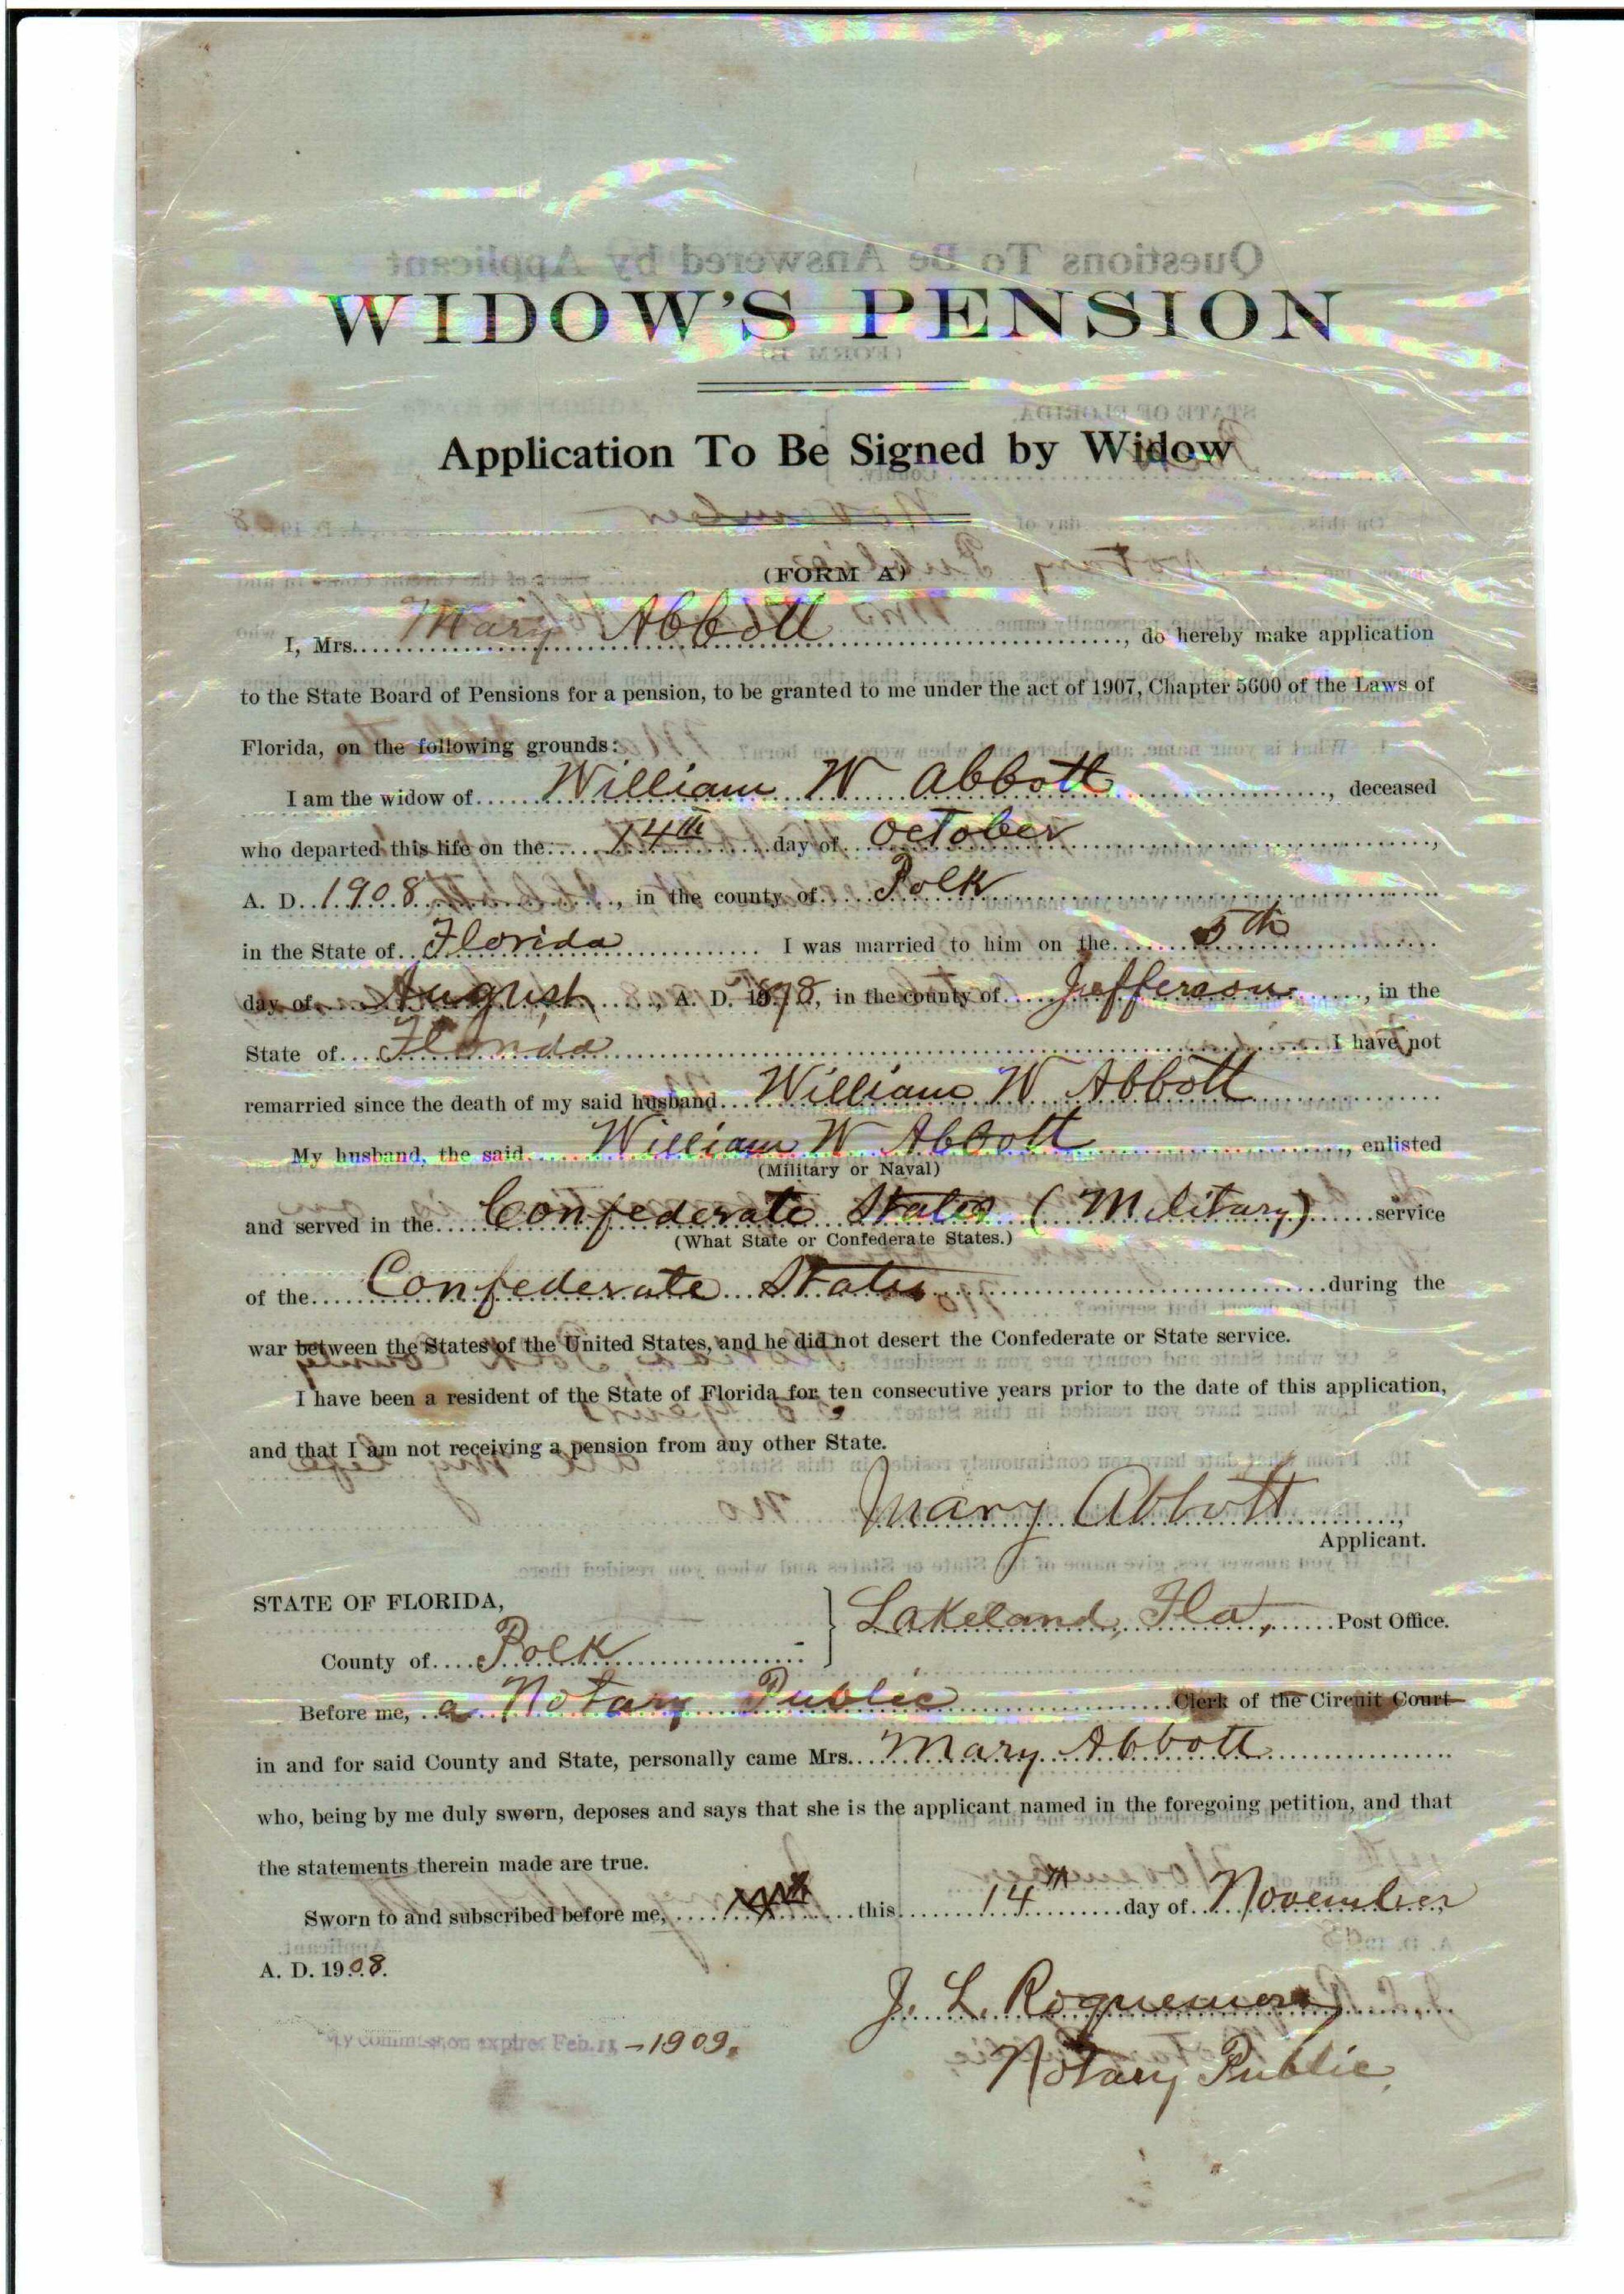 WIDOW'S PENSION
Application To Be Signed by Widow
(FORM A)
I, Mrs. Mary Abbott, do hereby make application
to the State Board of Pensions for a pension, to be granted to me under the act of 1907, Chapter 5600 of the Laws of
Florida, on the following grounds:
I am the widow of William W Abbott, deceased
who departed this life on the 14th day of October,
A. D. 1908, in the county of Polk
in the State of Florida I was married to him on the 5th
day of August, A. D. 1878, in the county of Jefferson, in the
State of Florida I have not
remarried since the death of my said husband William W Abbott
My husband, the said William W Abbott, enlisted
(Military or Naval)
and served in the Confederate States (Military) service
(What State or Confederate States.)
of the Confederate States during the
war between the States of the United States, and he did not desert the Confederate or State service.
I have been a resident of the State of Florida for ten consecutive years prior to the date of this application,
and that I am not receiving a pension from any other State.
Mary Abbott,
Applicant.
STATE OF FLORIDA,
Lakeland, Fla, Post Office.
County of Polk
Before me, a Notary Public Clerk of the Circuit Court
in and for said County and State, personally came Mrs. Mary Abbott
who, being by me duly sworn, deposes and says that she is the applicant named in the foregoing petition, and that
the statements therein made are true.
Sworn to and subscribed before me, this 14th day of November
A. D. 1908.
J. L. Roquemore
My commission expires Feb. - 1909.
Notary Public.